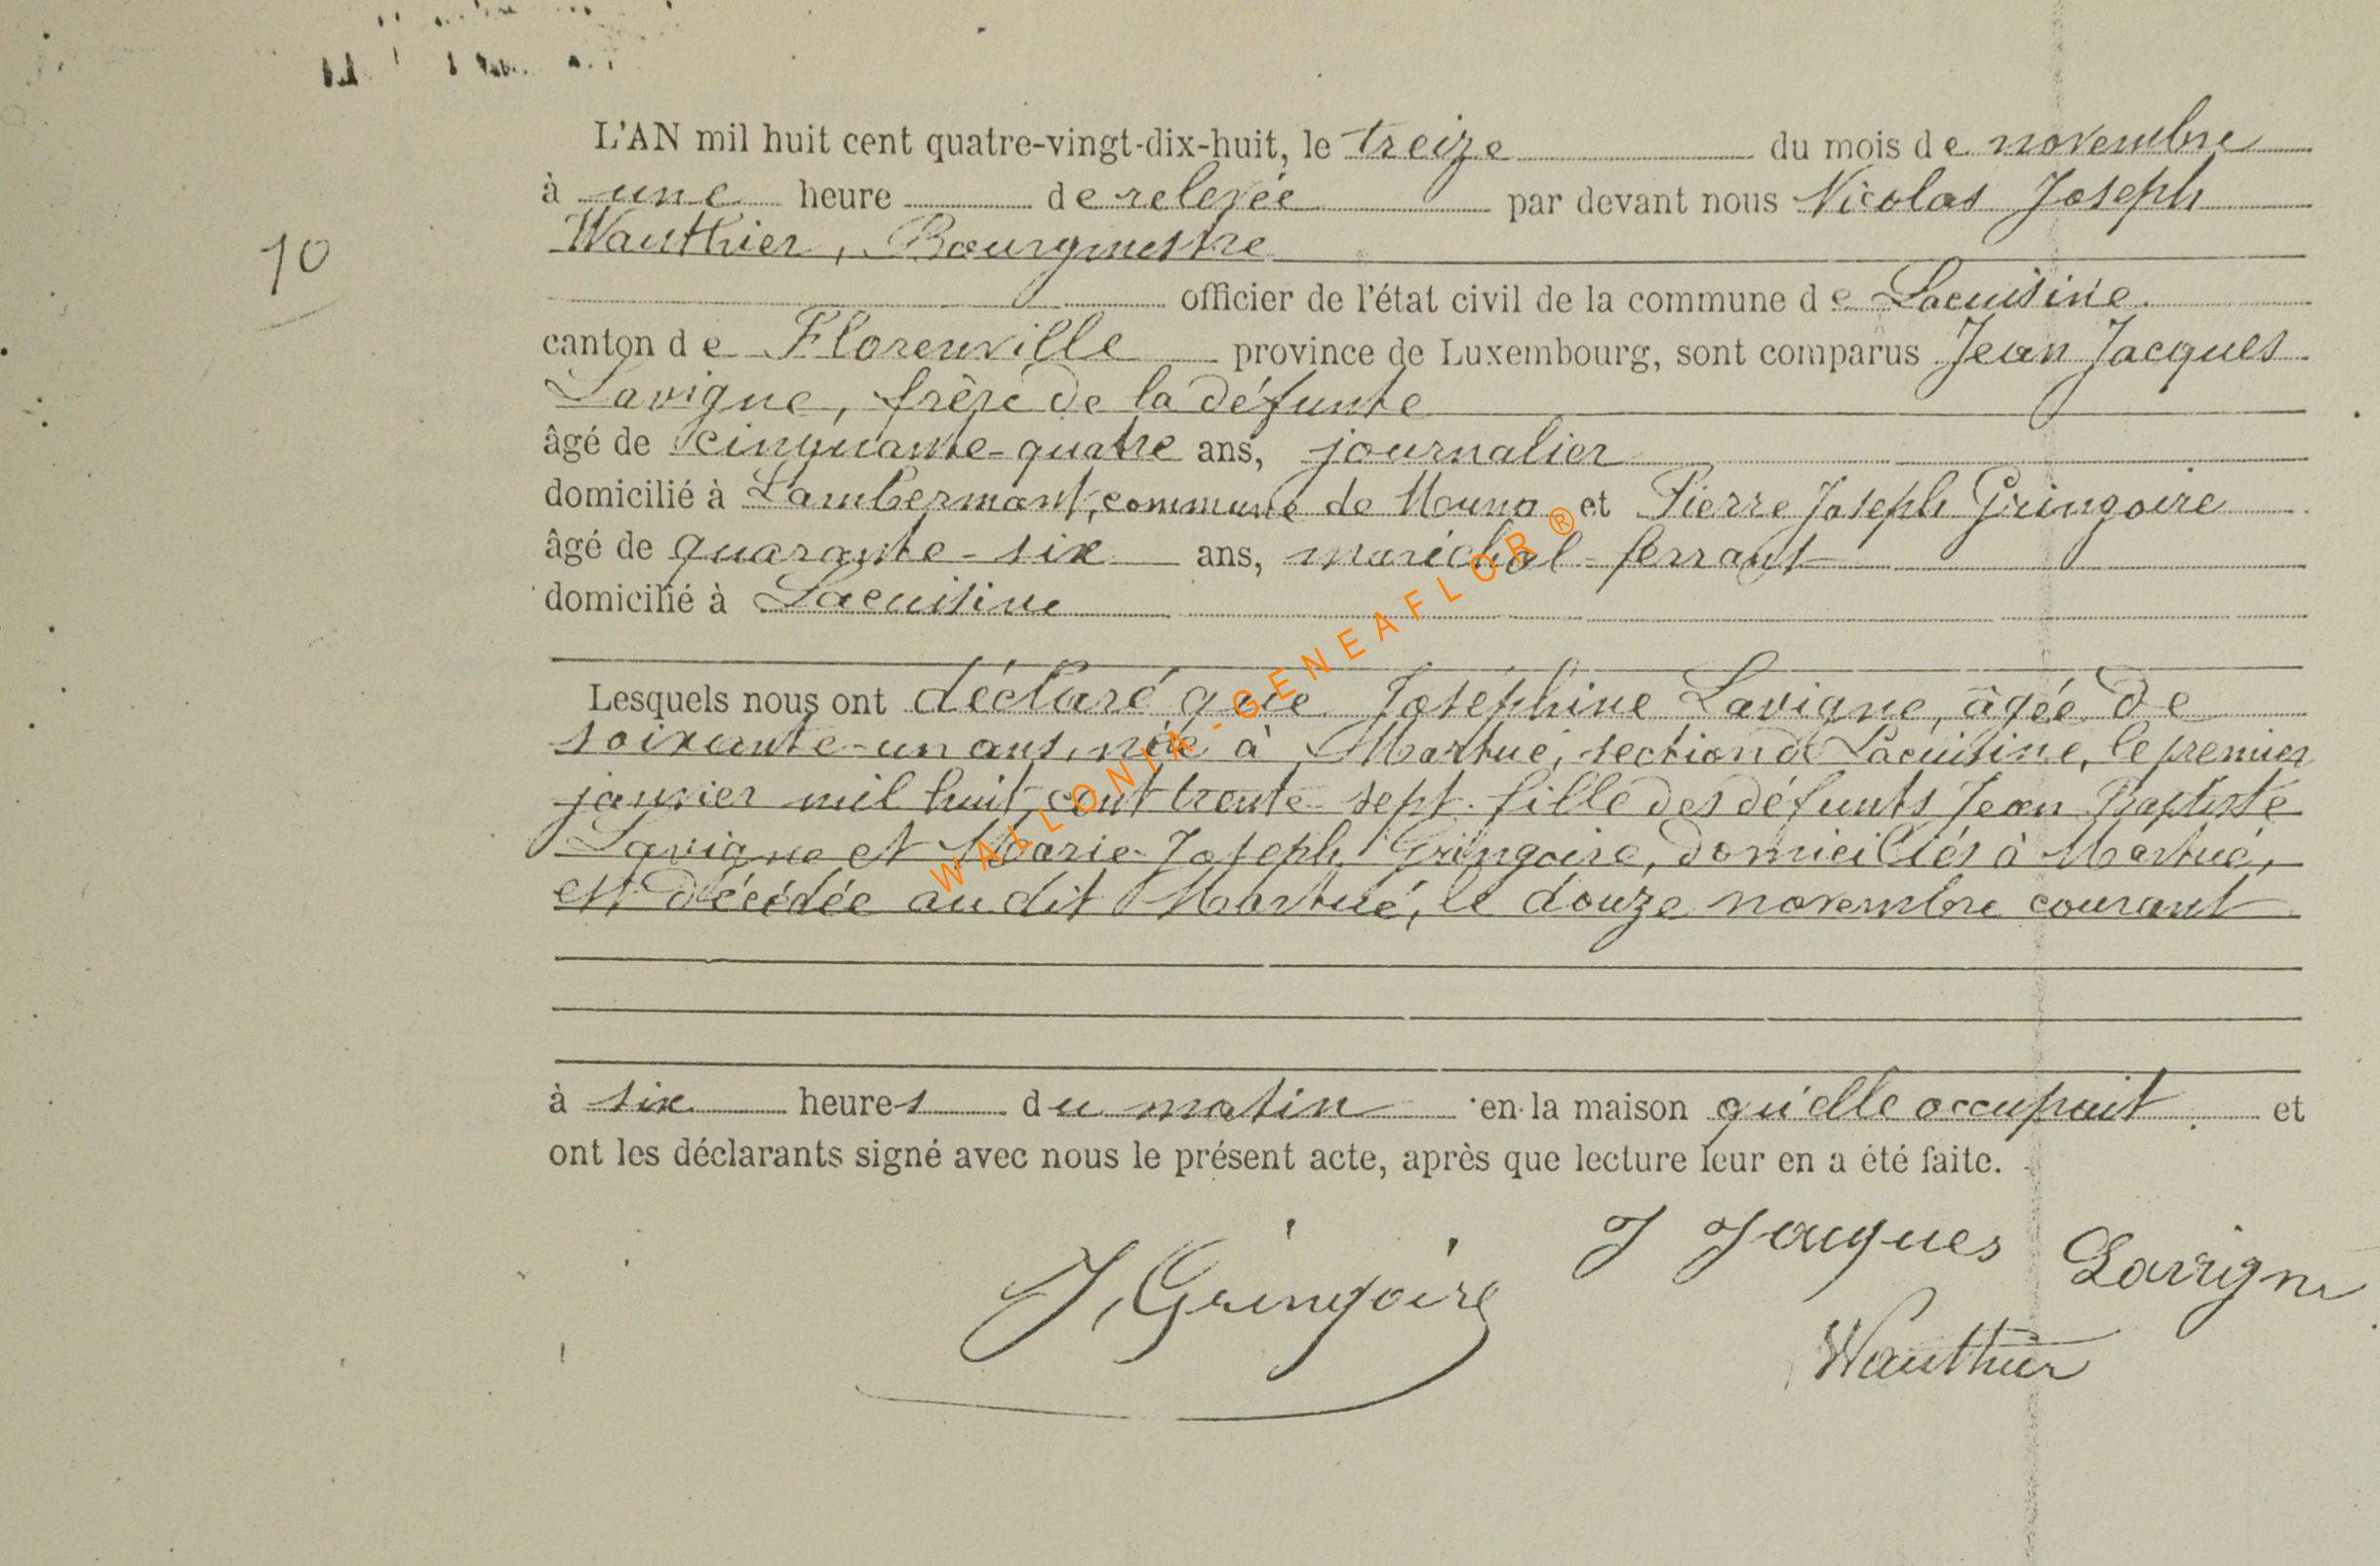 L'AN mil huit cent quatre-vingt-dix-huit, le treize du mois de novembre
à une heure de relevée par devant nous Nicolas Joseph
Wauthier, Bourgmestre
10
officier de l'état civil de la commune de Lacuisine
canton de Florenville province de Luxembourg, sont comparus Jean Jacques
Lavigne, frère de la défunte
âgé de cinquante-quatre ans, journalier
domicilié à Lambermont, commune de Muno et Pierre Joseph Gringoire
âgé de quarante-six ans, maréchal-ferrant
domicilié à Lacuisine
Lesquels nous ont déclaré que Joséphine Lavigne, âgée de
soixante-un ans, née à Martué, section de Lacuisine, le premier
janvier mil huit cent trente-sept, fille des défunts Jean Baptiste
Lavigne et Marie-Joseph Gringoire, domiciliés à Martué,
est décédée audit Martué, le douze novembre courant
à six heures du matin en la maison qu'elle occupait. et
ont les déclarants signé avec nous le présent acte, après que lecture leur en a été faite.
J. Gringoire
J Jacques Lavigne
Wauthier
WALLONIA-GENEAFLOR®